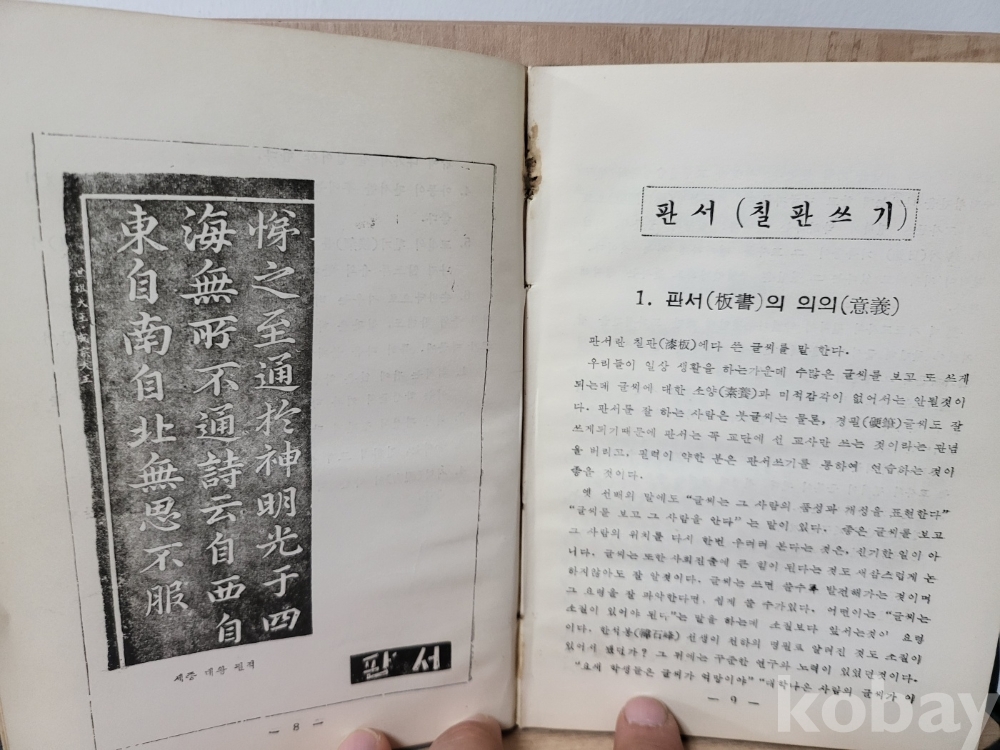 悌之至通於神明光于四
海無所不通詩云自西自
東自南自北無思不服
세종 대왕 필적
판서
— 8 —
판서 (칠판쓰기)
1. 판서(板書)의 의의(意義)
판서란 칠판(漆板)에다 쓴 글씨를 말 한다.
우리들이 일상 생활을 하는가운데 수많은 글씨를 보고 또 쓰게
되는데 글씨에 대한 소양(素養)과 미적감각이 없어서는 안될것이
다. 판서를 잘 하는 사람은 붓글씨는 물론, 경필(硬筆)글씨도 잘
쓰게되기때문에 판서는 꼭 교단에 선 교사만 쓰는 것이라는 관념
을 버리고, 필력이 약한 분은 판서쓰기를 통하여 연습하는 것이
좋을 것이다.
옛 선배의 말에도 “글씨는 그 사람의 품성과 개성을 표현한다”
“글씨를 보고 그 사람을 안다” 는 말이 있다. 좋은 글씨를 보고
그 사람의 위치를 다시 한번 우러러 본다는 것은, 신기한 일이 아
니다. 글씨는 또한 사회진출에 큰 힘이 된다는 것도 새삼스럽게 논
하지않아도 잘 알것이다. 글씨는 쓰면 쓸수록 발전해가는 것이며
그 요령을 잘 파악한다면, 쉽게 쓸 수가있다. 어떤이는 “글씨는
소질이 있어야 된다”는 말을 하는데 소질보다 앞서는것이 요령
이다. 한석봉(韓石峰) 선생이 천하의 명필로 알려진 것도 소질이
있어서 였던가? 그 뒤에는 꾸준한 연구와 노력이 있었던것이다.
“요새 학생들은 글씨가 엉망이야” “대학나온 사람의 글씨가 이
— 9 —
kobay